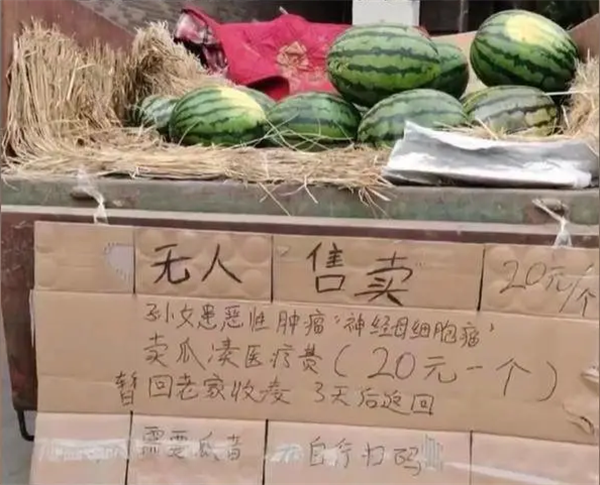 无人售卖 20元/个
孙女患恶性肿瘤"神经母细胞瘤"
卖瓜凑医疗费(20元一个)
暂回老家收凑 3天后返回
需要瓜者 自行扫码